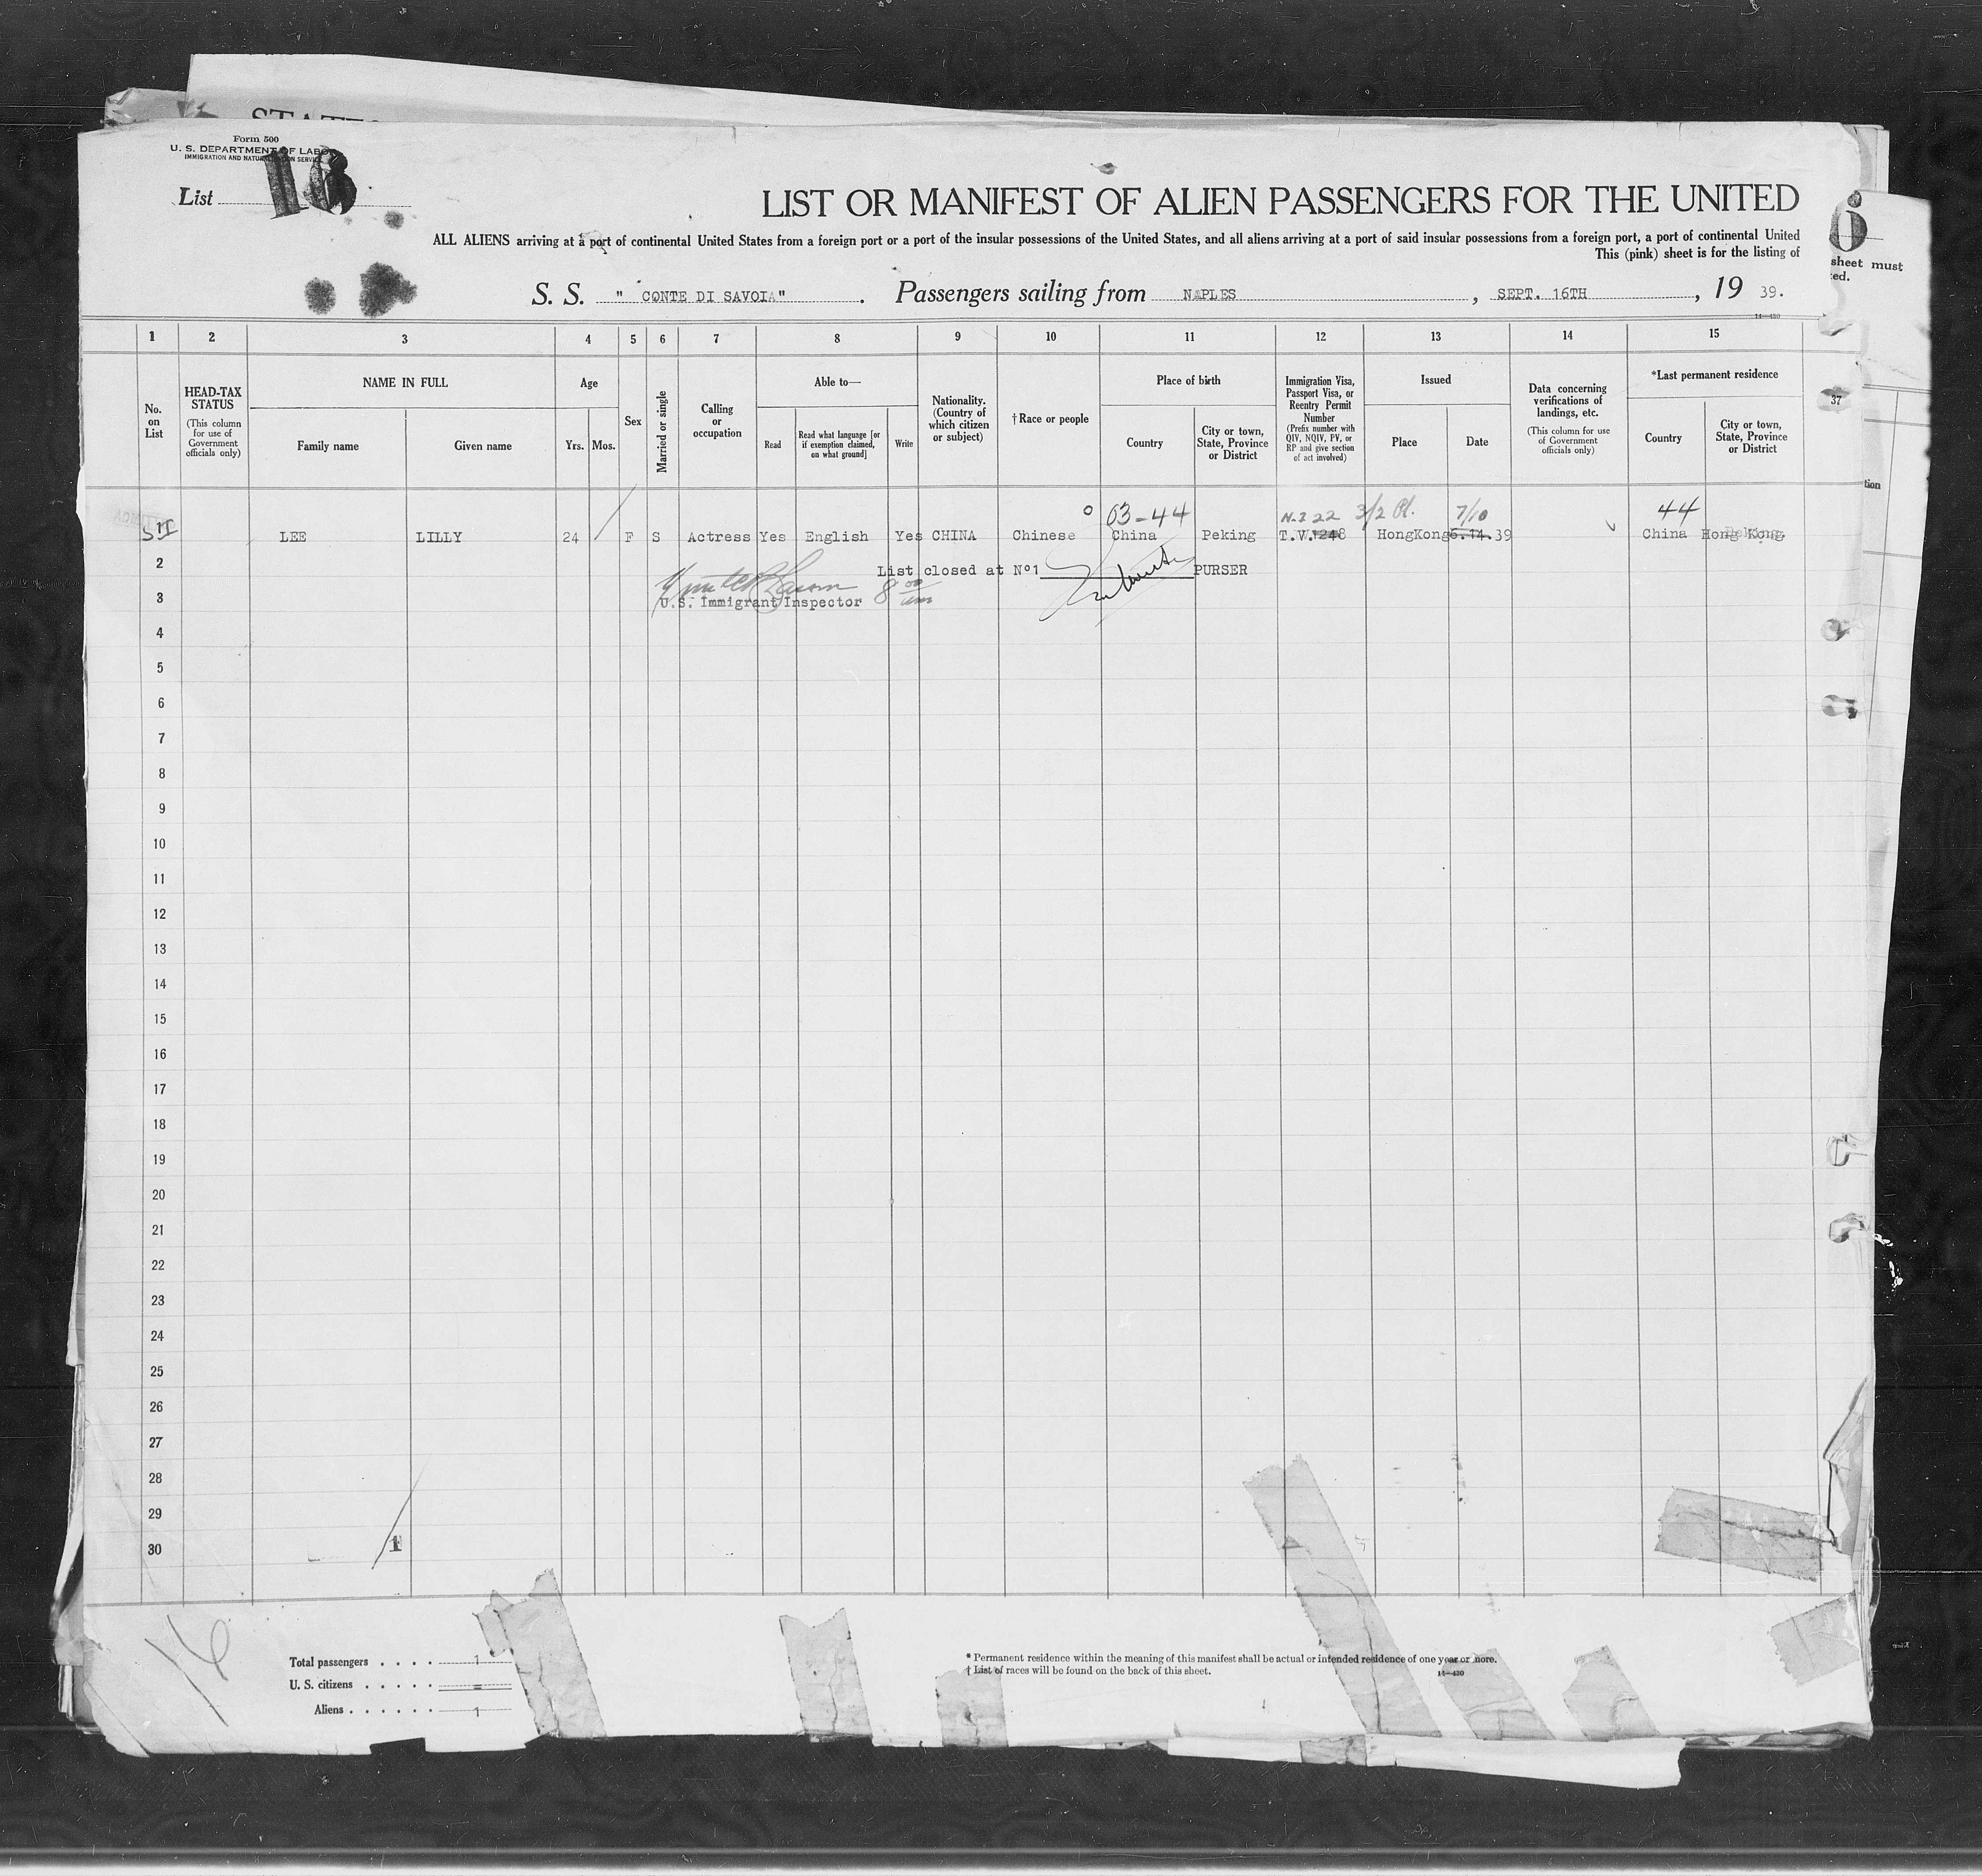 STATES
Form 500
U. S. DEPARTMENT OF LABOR
IMMIGRATION AND NATURALIZATION SERVICE
List 16
LIST OR MANIFEST OF ALIEN PASSENGERS FOR THE UNITED
ALL ALIENS arriving at a port of continental United States from a foreign port or a port of the insular possessions of the United States, and all aliens arriving at a port of said insular possessions from a foreign port, a port of continental United
This (pink) sheet is for the listing of
sheet must
S. S. " CONTE DI SAVOIA" . Passengers sailing from NAPLES , SEPT. 16TH , 19 39.
14—430
1 2 3 4 5 6 7 8 9 10 11 12 13 14 15
No. on List
HEAD-TAX STATUS
(This column for use of Government officials only)
NAME IN FULL
Family name
Given name
Age
Yrs. Mos.
Sex
Married or single
Calling or occupation
Able to—
Read
Read what language [or if exemption claimed, on what ground]
Write
Nationality. (Country of which citizen or subject)
† Race or people
Place of birth
Country
City or town, State, Province or District
Immigration Visa, Passport Visa, or Reentry Permit Number
(Prefix number with QIV, NQIV, PV, or RP and give section of act involved)
Issued
Place
Date
Data concerning verifications of landings, etc.
(This column for use of Government officials only)
*Last permanent residence
Country
City or town, State, Province or District
37
tion
03-44 3/2 7/10 44
LEE LILLY 24 F S Actress Yes English Yes CHINA Chinese China Peking T.V.1248 HongKong 6.14.39 China Hong Kong
2 List closed at Nº1 PURSER
3 U.S. Immigrant Inspector 8 00 am
4
5
6
7
8
9
10
11
12
13
14
15
16
17
18
19
20
21
22
23
24
25
26
27
28
29
30 1
16
Total passengers . . . . 1
U. S. citizens . . . . . -
Aliens . . . . . . 1
* Permanent residence within the meaning of this manifest shall be actual or intended residence of one year or more.
† List of races will be found on the back of this sheet.
14—430